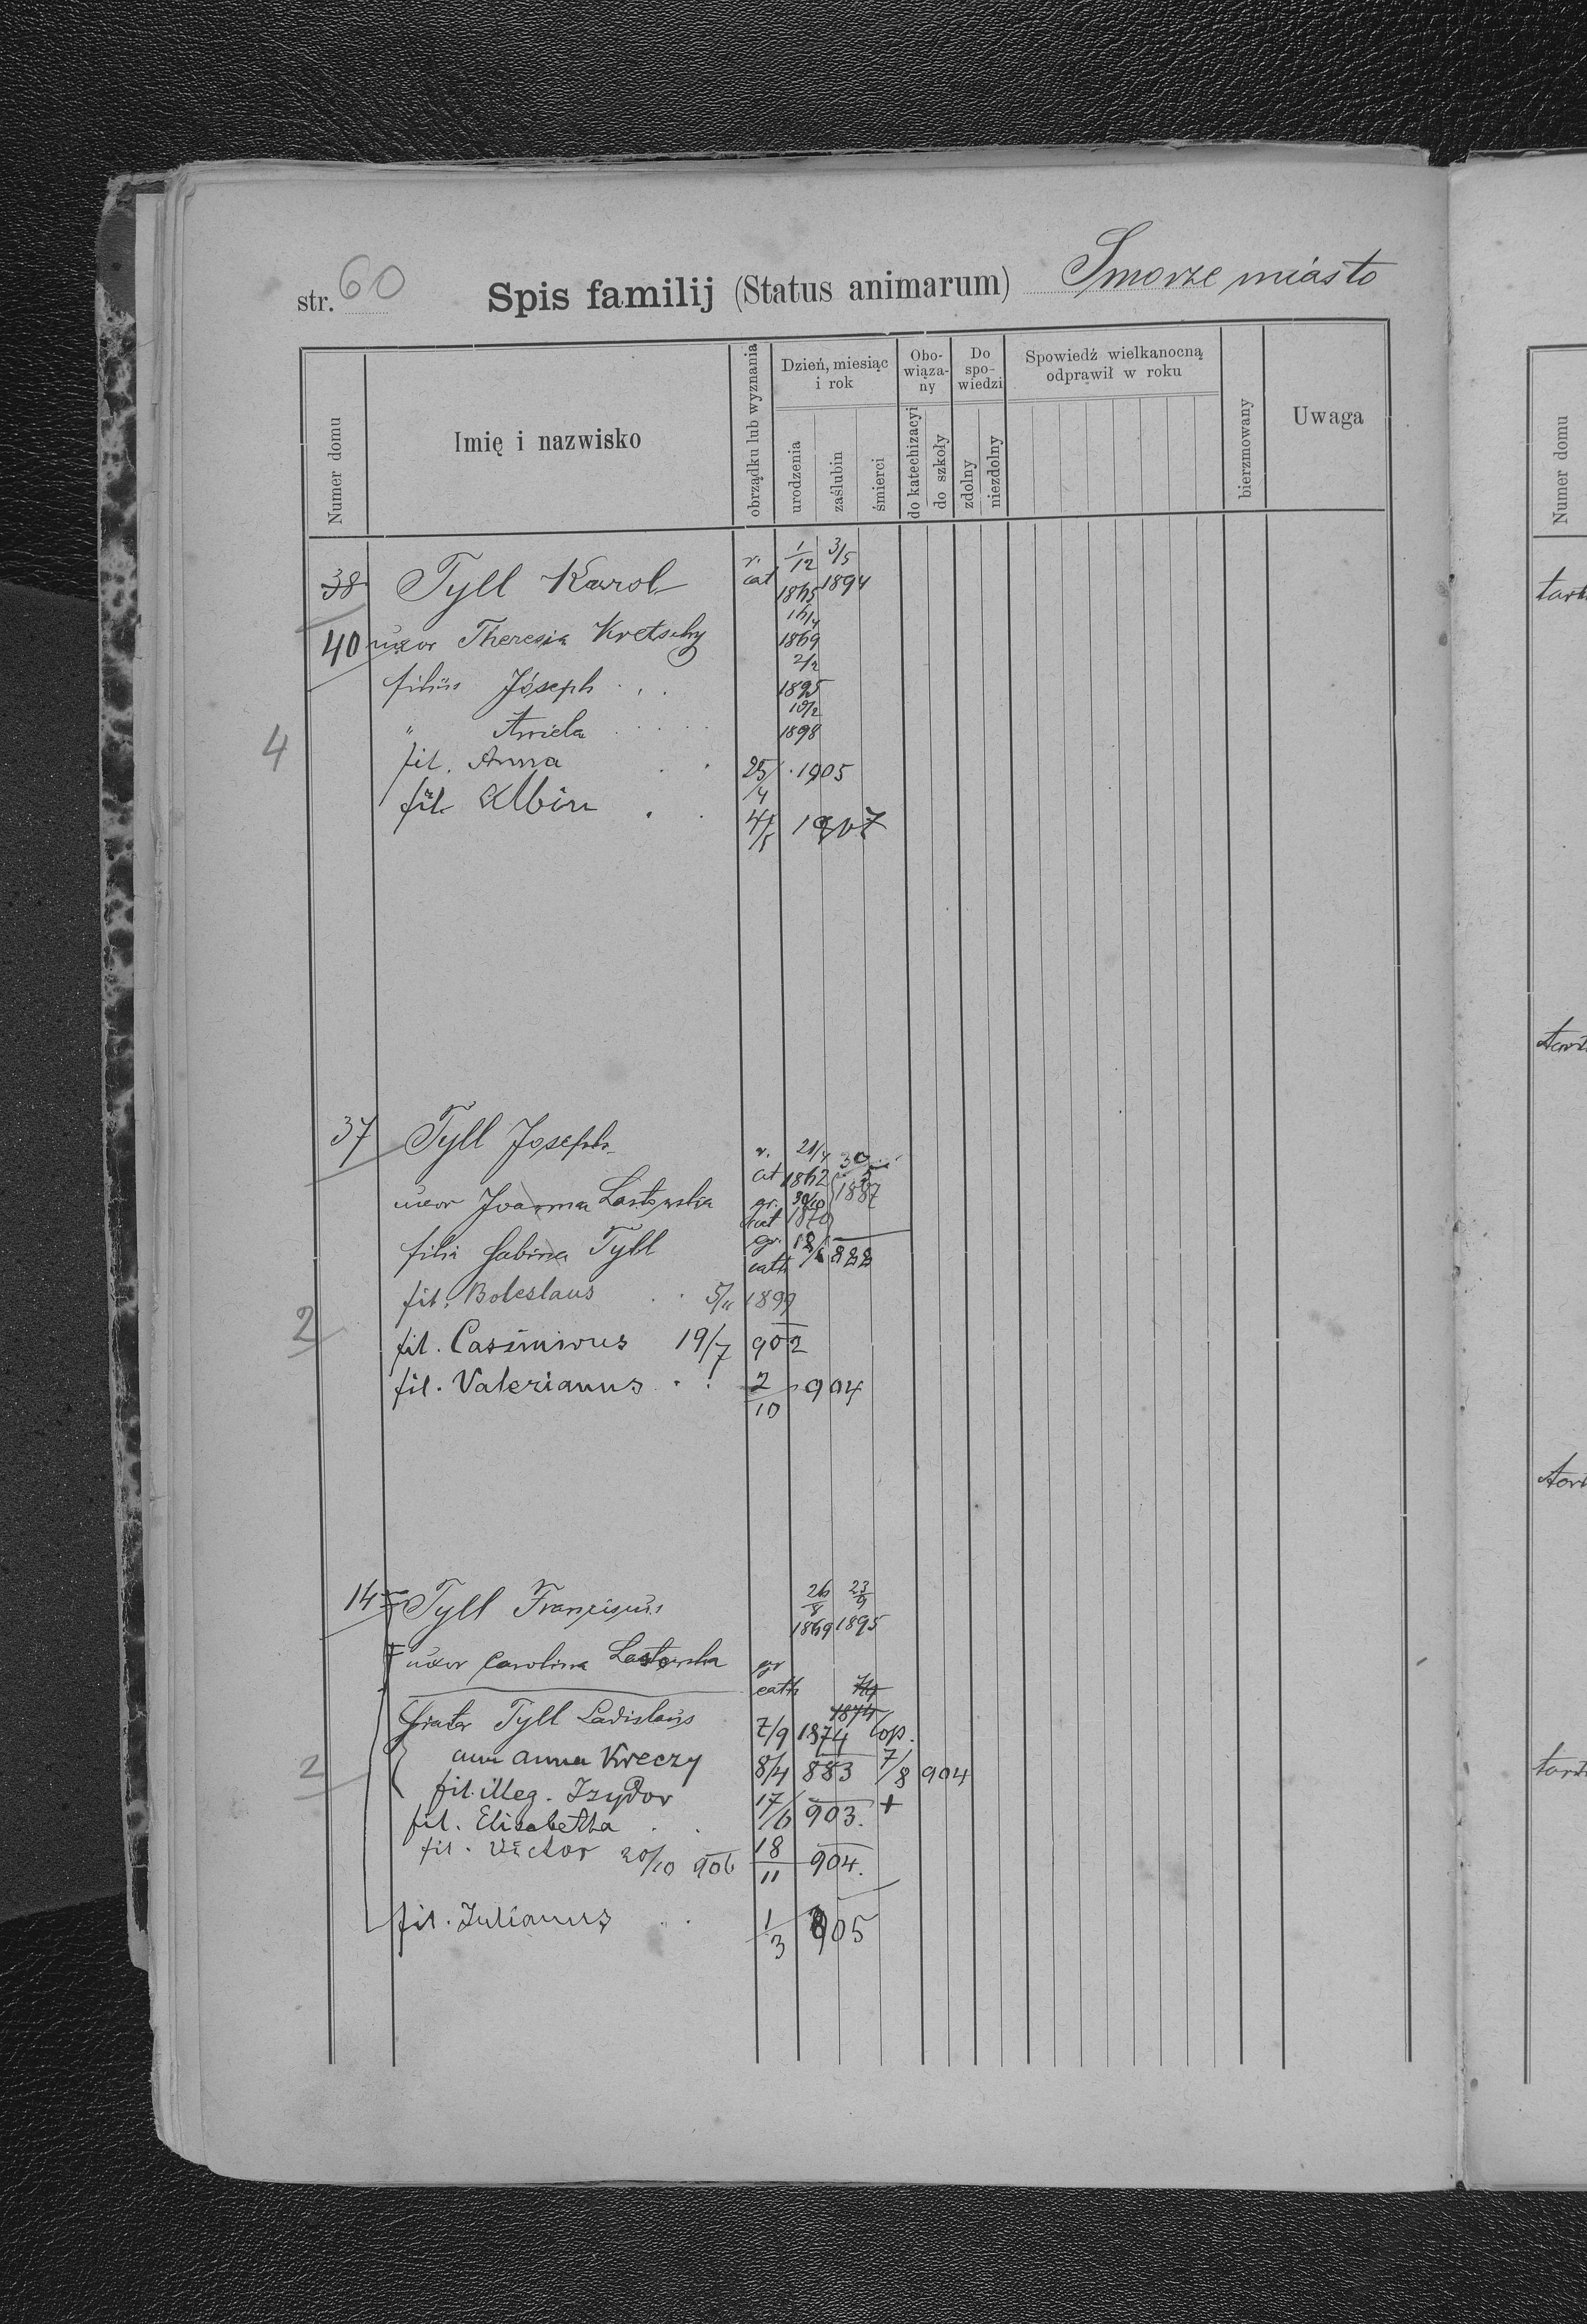 str. 60 Spis familij (Status animarum) Smorze miasto
Numer domu
Imię i nazwisko
obrządku lub wyznania
Dzień, miesiąc i rok
urodzenia
zaślubin
śmierci
Obo-wiąza-ny
do katechizacyi
do szkoły
Do spo-wiedzi
zdolny
niezdolny
Spowiedź wielkanocną odprawił w roku
bierzmowany
Uwaga
Numer domu
38 Tyll Karol r. cat 1/12 1865 3/5 1894
40 uxor Theresia Kretschy 1869
filius Jóseph . . 2/2 1895
" Aniela 10/2 1898
4
fil. Anna . . 25/4 . 1905
fil. Albin . . 4/5 1907
37 Tyll Joseph r. cat 21/4 1862 30/5 1887
uxor Joanna Lastowska gr. cat 30/10 1870
filia Sabina Tyll gr. cath 888
fil. Boleslaus . . 5/11 1899
2
fil. Casimirus 19/7 902
fil. Valerianus . . 2/10 904
14 Tyll Franciscus 26/8 1869 23/9 1895
uxor Carolina Lastowska gr cath
1874
frater Tyll Ladislaus 7/9 1874 Cop.
cum Anna Kreczy 8/4 883 7/8 904
2
fil. illeg. Izydor 17/6 903. +
fil. Elisabetha . . 18/11 904.
fil. Victor 20/10 906
fil. Julianus . . 1/3 905